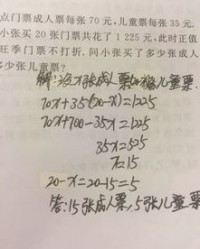 点门票成人票每张 70 元,儿童票每张 35 元.
小张买 20 张门票共花了 1 225 元,此时正值
旺季门票不打折. 问小张买了多少张成人
多少张儿童票?
解:设x张成人票 儿童票.
70x+35(20-x)=1225
70x+700-35x=1225
35x=525
x=15
20-x=20-15=5
答:15张成人票,5张儿童票